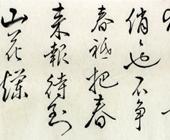 俏也不争
春祗把春
来報待到
山花爛